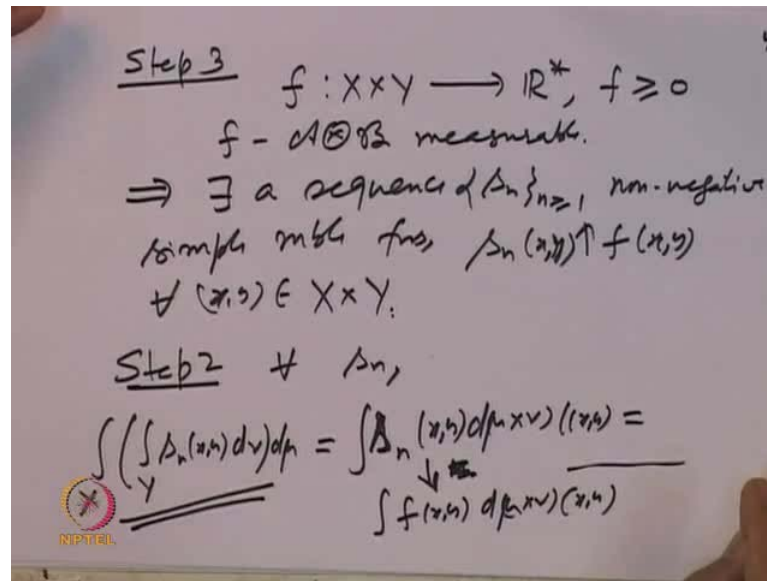 Step 3 f : X×Y ⟶ ℝ*, f ≥ 0
f - A⊗B measurable.
⟹ ∃ a sequence {sₙ}ₙ≥₁ non-negative
simple mble fns, sₙ(x,y)↑ f(x,y)
∀ (x,y) ∈ X×Y.
Step 2 ∀ sₙ,
∫(∫_Y sₙ(x,y) dν)dμ = ∫sₙ(x,y)d(μ×ν)(x,y) =
↓
∫ f(x,y) d(μ×ν)(x,y)
NPTEL